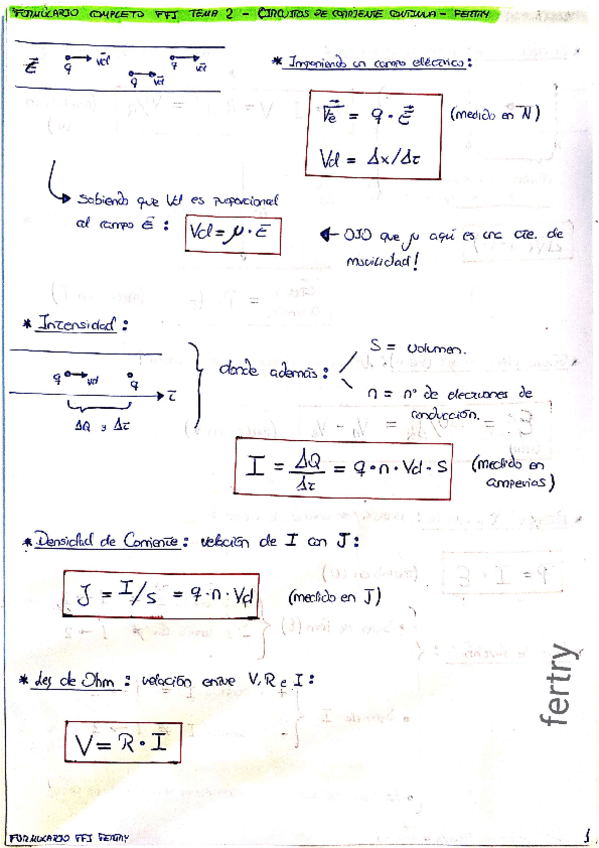 FORMULARIO COMPLETO FFI TEMA 2 - CIRCUITOS DE CORRIENTE CONTINUA - FERTRY
E⃗ q Vd q Vd q Vd
* Imponiendo un campo eléctrico:
F⃗e = q · E⃗ (medido en N)
Vd = Δx/Δt
Sabiendo que Vd es proporcional
al campo E⃗ : Vd = μ · E ← OJO que μ aquí es una cte. de
movilidad!
* Intensidad:
q Vd q I
ΔQ y Δt
donde además:
S = volumen.
n = nº de electrones de
conducción.
I = ΔQ/Δt = q·n·Vd·S (medido en
amperios)
* Densidad de Corriente: relación de I con J:
J = I/S = q·n·Vd (medido en J)
* Ley de Ohm: relación entre V, R e I:
V = R · I
fertry
FORMULARIO FFI FERTRY 1